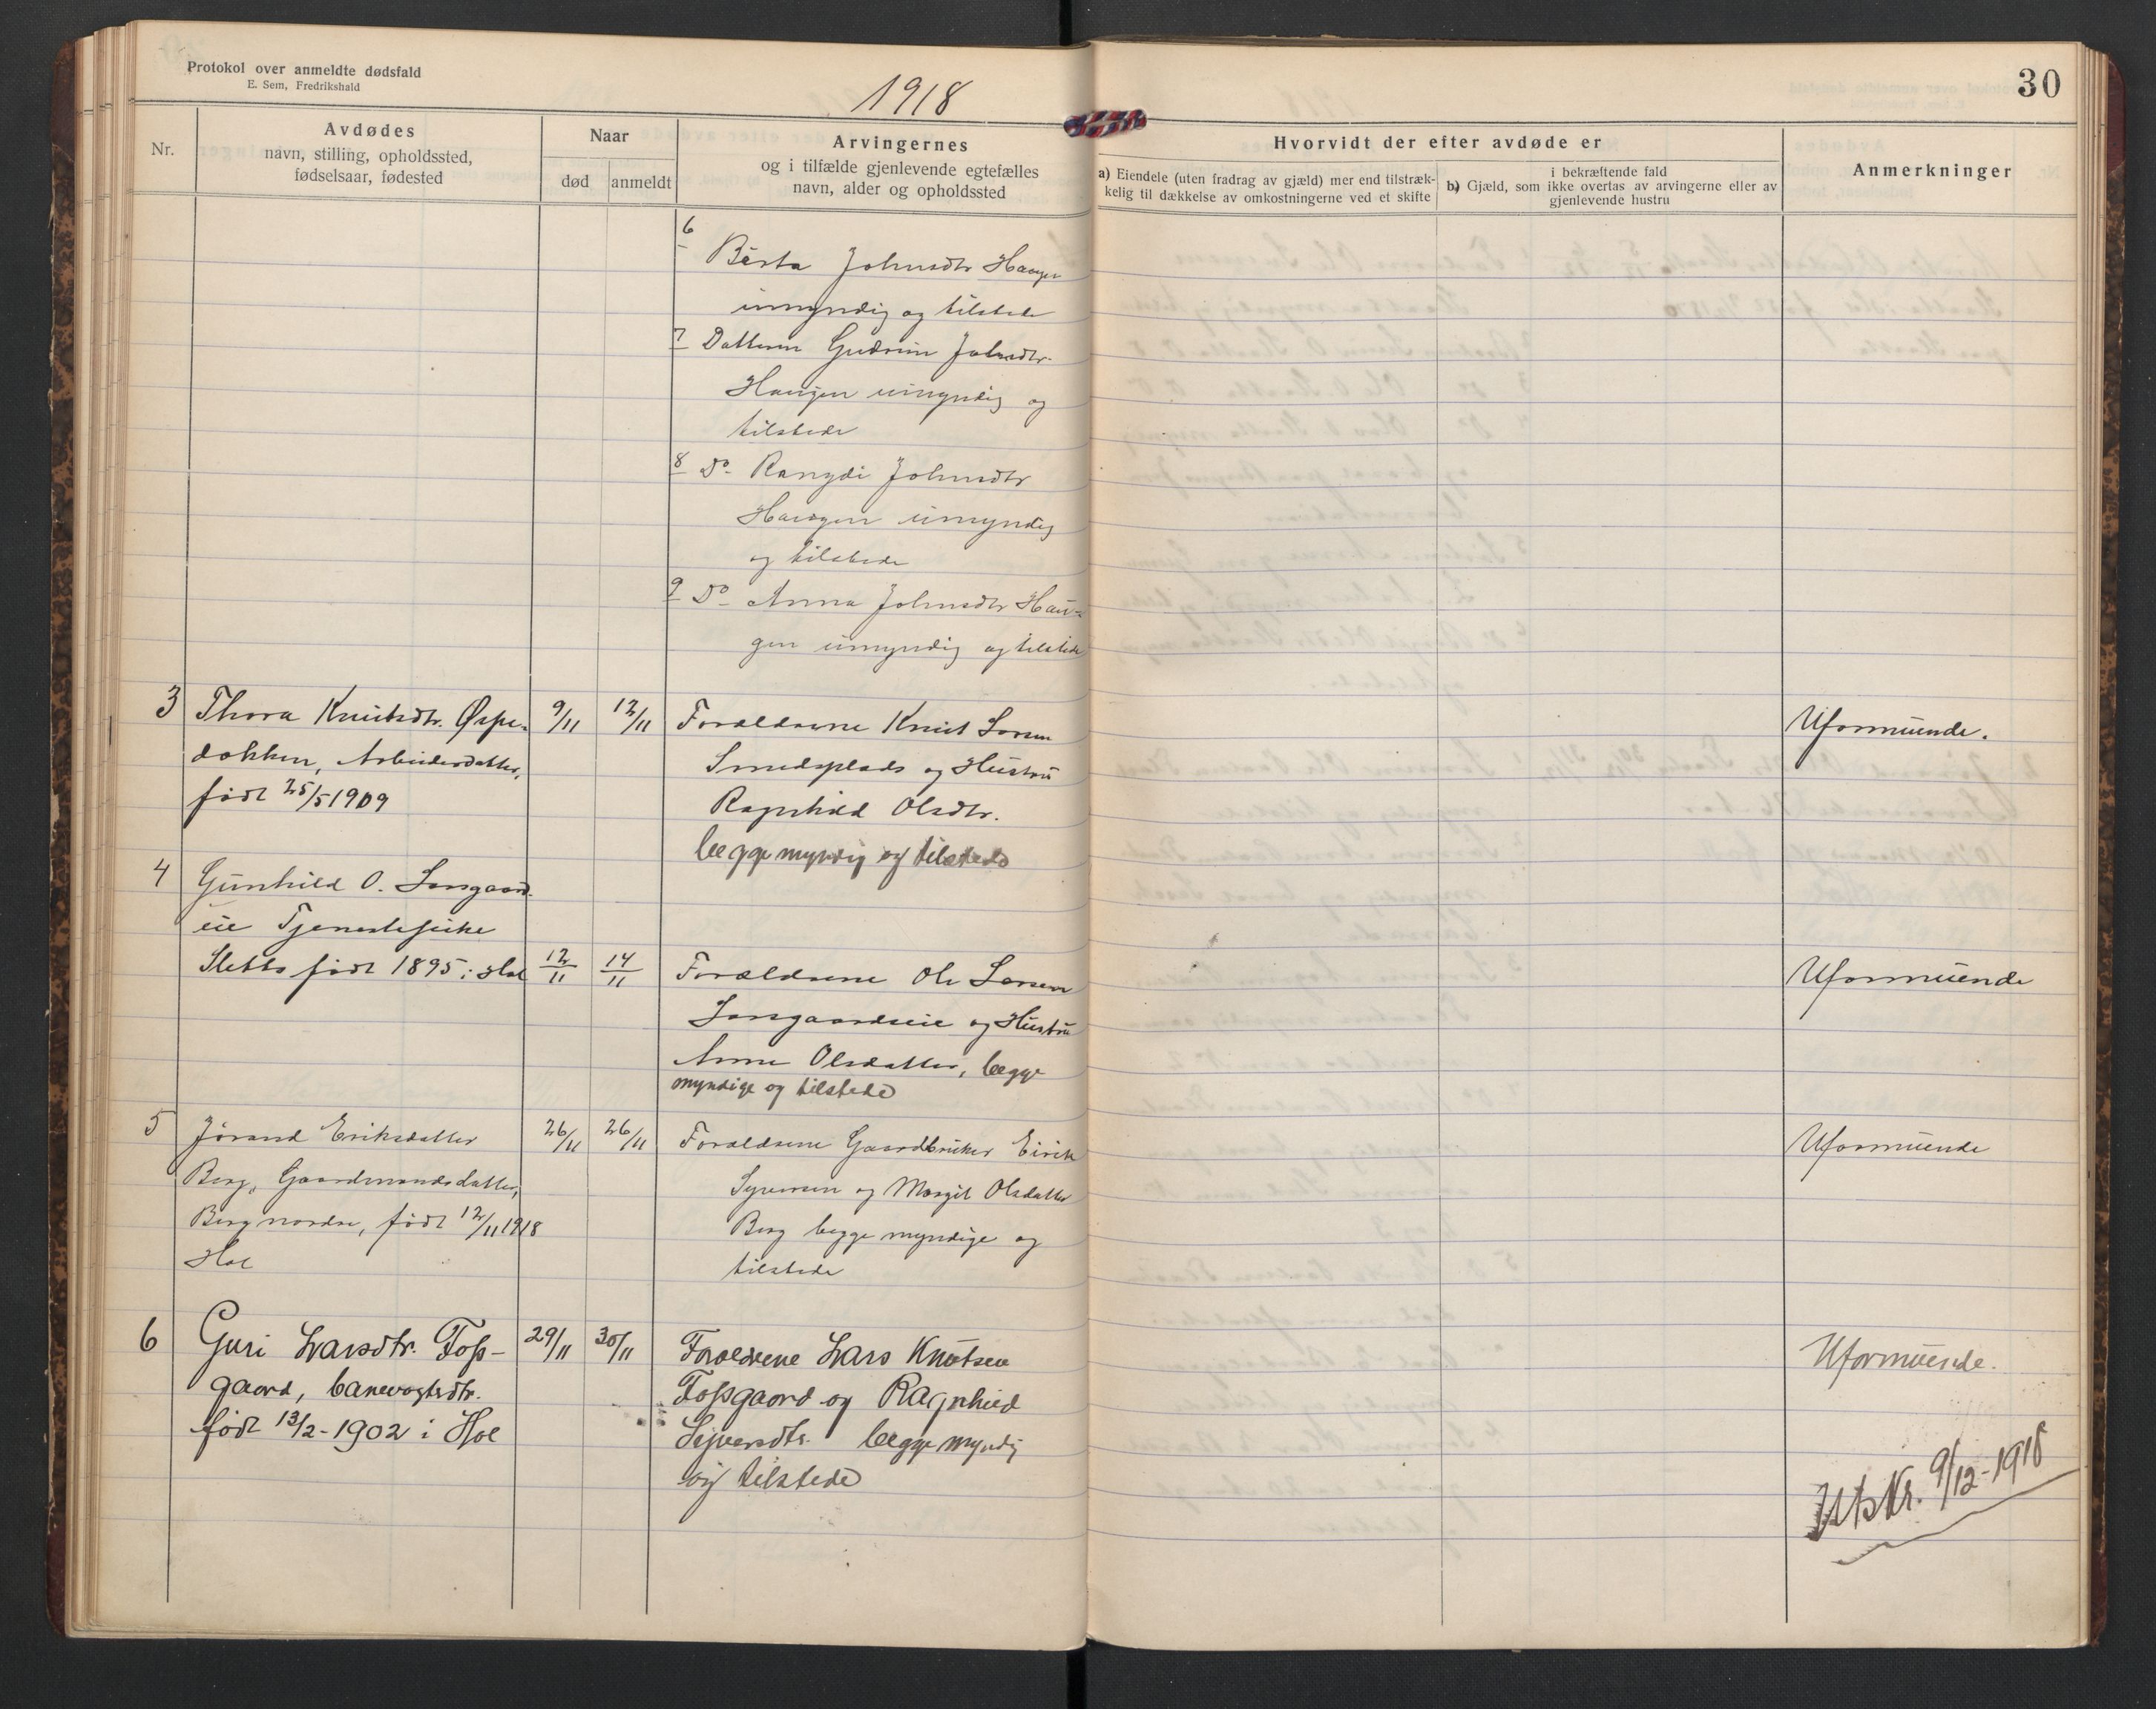 Protokol over anmeldte dødsfald
E. Sem, Fredrikshald
1918
30
Nr.
Avdødes
navn, stilling, opholdssted,
fødselsaar, fødested
Naar
død
anmeldt
Arvingernes
og i tilfælde gjenlevende egtefælles
navn, alder og opholdssted
Hvorvidt der efter avdøde er
a) Eiendele (uten fradrag av gjæld) mer end tilstræk-
kelig til dækkelse av omkostningerne ved et skifte
i bekræftende fald
b) Gjæld, som ikke overtas av arvingerne eller av
gjenlevende hustru
Anmerkninger
6
Johnsdtr Haugen
umyndig og tilstede
7 Datteren Gudrun Johnsdtr.
Haugen umyndig og
tilstede
8 Do Rangdi Johnsdtr
Haugen umyndig
og tilstede
9 Do Anna Johnsdtr Hau-
gen umyndig og tilstede
3
Thora Knutsdtr. Øspe-
dokken, Arbeiderdatter,
født 25/5 1909
9/11
12/11
Forældrene Knut Larsen
Smedsplads og Hustru
Ragnhild Olsdtr.
begge myndig og tilstede
Uformuende.
4
Gunhild O. Sangaard-
eie Tjenestepike
Sletto født 1895 i Hol
12/11
14/11
Forældrene Ole Larsen
Sangaardseie og Hustru
Anne Olsdatter, begge
myndige og tilstede
Uformuende
5
Jørand Eriksdatter
Berg, Gaardmandsdatter,
Berg nordre, født 12/11 1918
Hol
26/11
26/11
Forældrene Gaardbruker Eirik
og Margit Olsdatter
Berg begge myndige og
tilstede
Uformuende
6
Guri Larsdtr. Foss-
gaard, banevogtsdtr.
født 13/2-1902 i Hol
29/11
30/11
Foreldrene Lars Knutsen
Fossgaard og Ragnhild
Sejversdtr. begge myndig
og tilstede
Uformuende.
Utskr. 9/12-1918